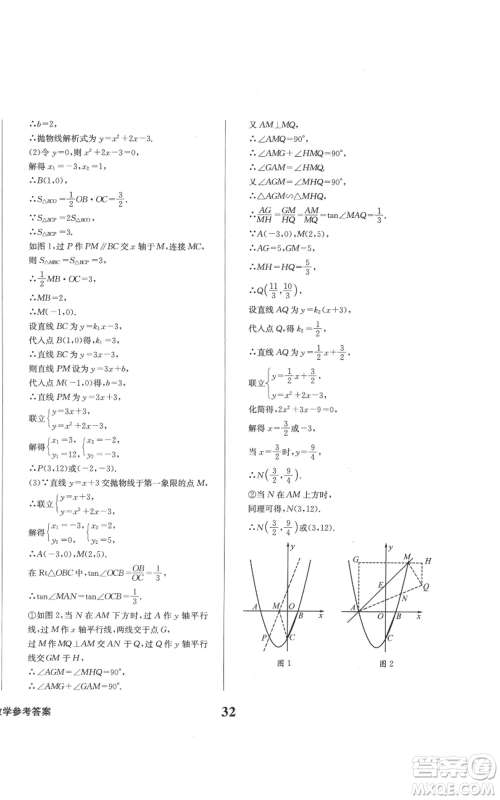 ∴b=2,
∴抛物线解析式为 y=x²+2x-3.
(2)令 y=0,则 x²+2x-3=0,
解得 x₁=-3,x₂=1,
∴B(1,0),
∴S△BCO=1/2 OB·OC=3/2,
∴S△BCP=2S△BCO=3,
如图1,过 P 作 PM∥BC 交 x 轴于 M,连接 MC,
则 S△MBC=S△BCP=3,
∴1/2 MB·OC=3,
∴MB=2,
∴M(-1,0),
设直线 BC 为 y=k₁x-3,
代入点 B(1,0),得 k₁=3,
∴直线 BC 为 y=3x-3,
则直线 PM 设为 y=3x+b,
代入点 M(-1,0),得 b=3,
∴直线 PM 为 y=3x+3,
联立{y=3x+3, y=x²+2x-3,
解得{x=3, y=12 或{x=-2, y=-3,
∴P(3,12)或(-2,-3).
(3)∵直线 y=x+3 交抛物线于第一象限的点 M,
∴联立{y=x+3, y=x²+2x-3,
解得{x=2, y=5 或{x=-3, y=0,
∴A(-3,0),M(2,5).
在 Rt△OBC 中,tan∠OCB=OB/OC=1/3,
∴tan∠MAN=tan∠OCB=1/3,
①如图2,当 N 在 AM 下方时,过 A 作 y 轴平行
线,过 M 作 x 轴平行线,两线交于点 G,
过 M 作 MQ⊥AM 交 AN 于 Q,过 Q 作 y 轴平行
线交直线 MG 于 H,
∴∠AGM=∠MHQ=90°,
∴∠AMG+∠GAM=90°.
又 AM⊥MQ,
∴∠AMQ=90°,
∴∠AMG+∠HMQ=90°,
∴∠GAM=∠HMQ,
∴△AGM∽△MHQ,
∴AG/MH=GM/HQ=AM/MQ=tan∠MAQ=1/3,
∵A(-3,0),M(2,5),
∴AG=GM=5,
∴MH=HQ=5/3,
∴Q(11/3,10/3),
设直线 AQ 为 y=k₂(x+3),
代入点 Q,得 k₂=1/2,
∴直线 AQ 为 y=1/2x+3/2,
联立{y=1/2x+3/2, y=x²+2x-3,
化简得,2x²+3x-9=0,
解得 x=-3 或 x=3/2,
当 x=3/2时,y=9/4,
∴N(3/2,9/4),
②当 N 在 AM 上方时,
同理可得,N(3,12),
∴N(3/2,9/4)或(3,12).
y
A M O B x
P C
图1
G y M H
E Q
N
A O B x
C
图2
数学参考答案
32